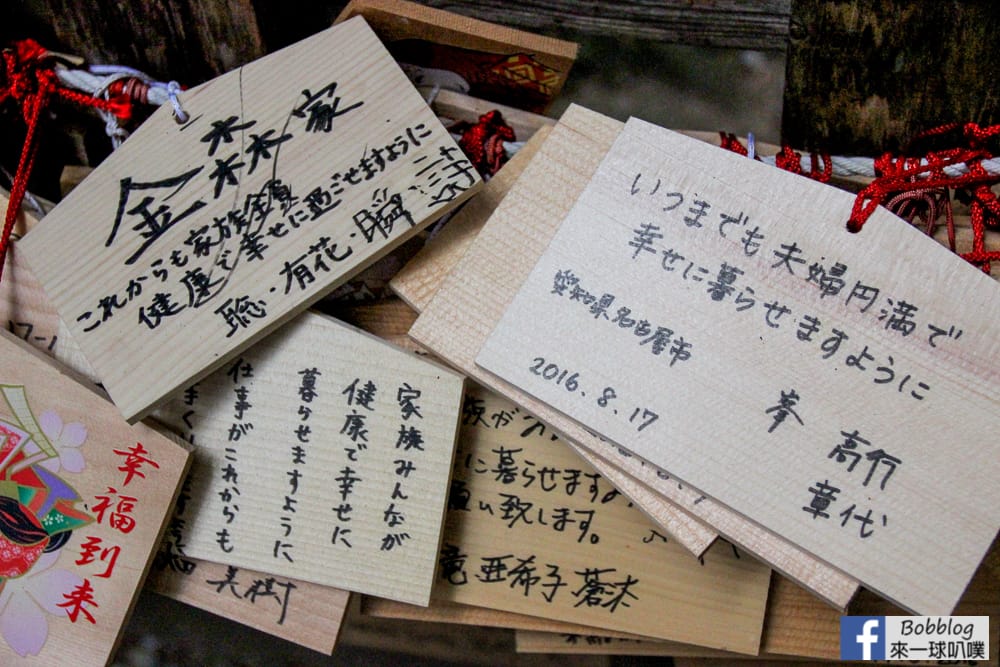 金森家
これからも家族全員
健康で幸せに過ごせますように
聡・有花・瞬
いつまでも夫婦円満で
幸せに暮らせますように
愛知県名古屋市
峯 高行
章代
2016.8.17
家族みんなが
健康で幸せに
暮らせますように
仕事がこれからも
幸福到来
に暮らせますよ
致します。
亜希子 蒼木
美樹
Bobblog
來一球叭噗